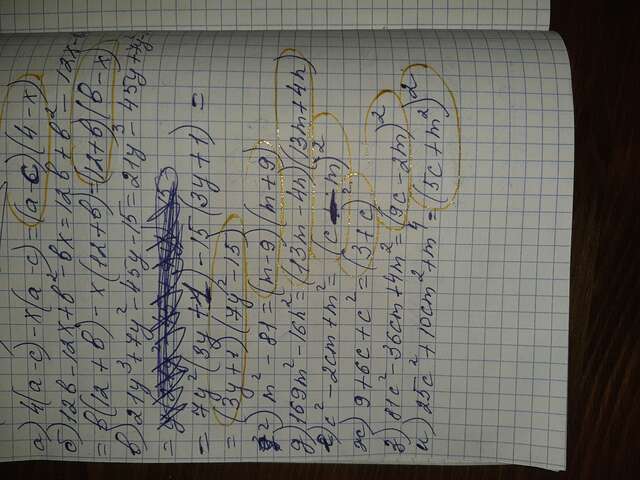 а) 4(a-c)-x(a-c)=(a-c)(4-x)
б) 12b-12x+b²-bx=12b+b²-12x-
=b(12+b)-x(12+b)=(12+b)(b-x)
в) 21y³+7y²-45y-15=21y³-45y+7y²-
=
=7y²(3y+1)-15(3y+1)=
=(3y+1)(7y²-15)
г) m²-81=(m-9)(m+9)
д) 169m²-16n²=(13m-4n)(13m+4n)
е) c²-2cm+m²=(c-m)²
ж) 9+6c+c²=(3+c)²
з) 81c²-36cm+4m²=(9c-2m)²
и) 25c²+10cm²+m⁴=(5c+m²)²